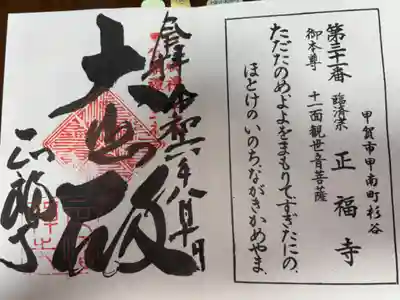 甲賀市甲南町杉谷
第三十一番 臨済宗 正福寺
御本尊 十一面観世音菩薩
ただたのめ、よよをまもりて、すぎたにの、
ほとけのいのち、ながきかめやま、
奉拝 令和六年八月
大悲殿
正福寺